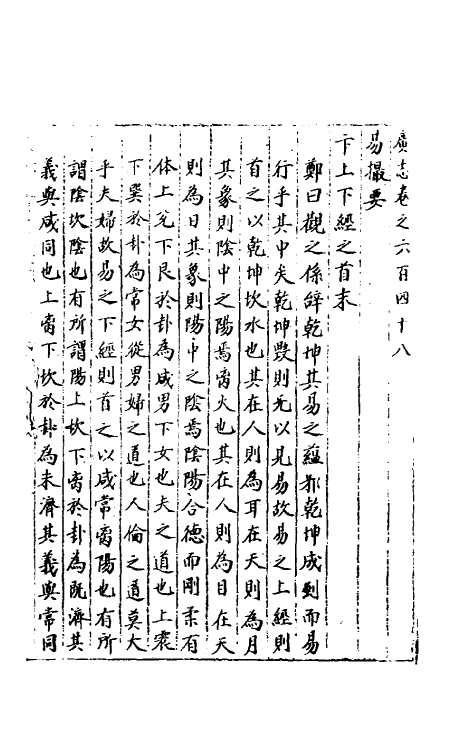 廣志卷之六百四十八
易撮要
卞上下經之首末
鄭曰觀之係辭乾坤其易之蘊邪乾坤成列而易
行乎其中矣乾坤毀則无以見易故易之上經則
首之以乾坤坎水也其在人則為耳在天則為月
其象則陰中之陽焉离火也其在人則為目在天
則為日其象則陽中之陰焉陰陽合德而剛柔有
体上兌下艮於卦為咸男下女也夫之道也上震
下巽於卦為常女從男婦之道也人倫之道莫大
乎夫婦故易之下經則首之以咸常离陽也有所
謂陰坎陰也有所謂陽上坎下离於卦為既濟其
義與咸同也上离下坎於卦為未濟其義與常同